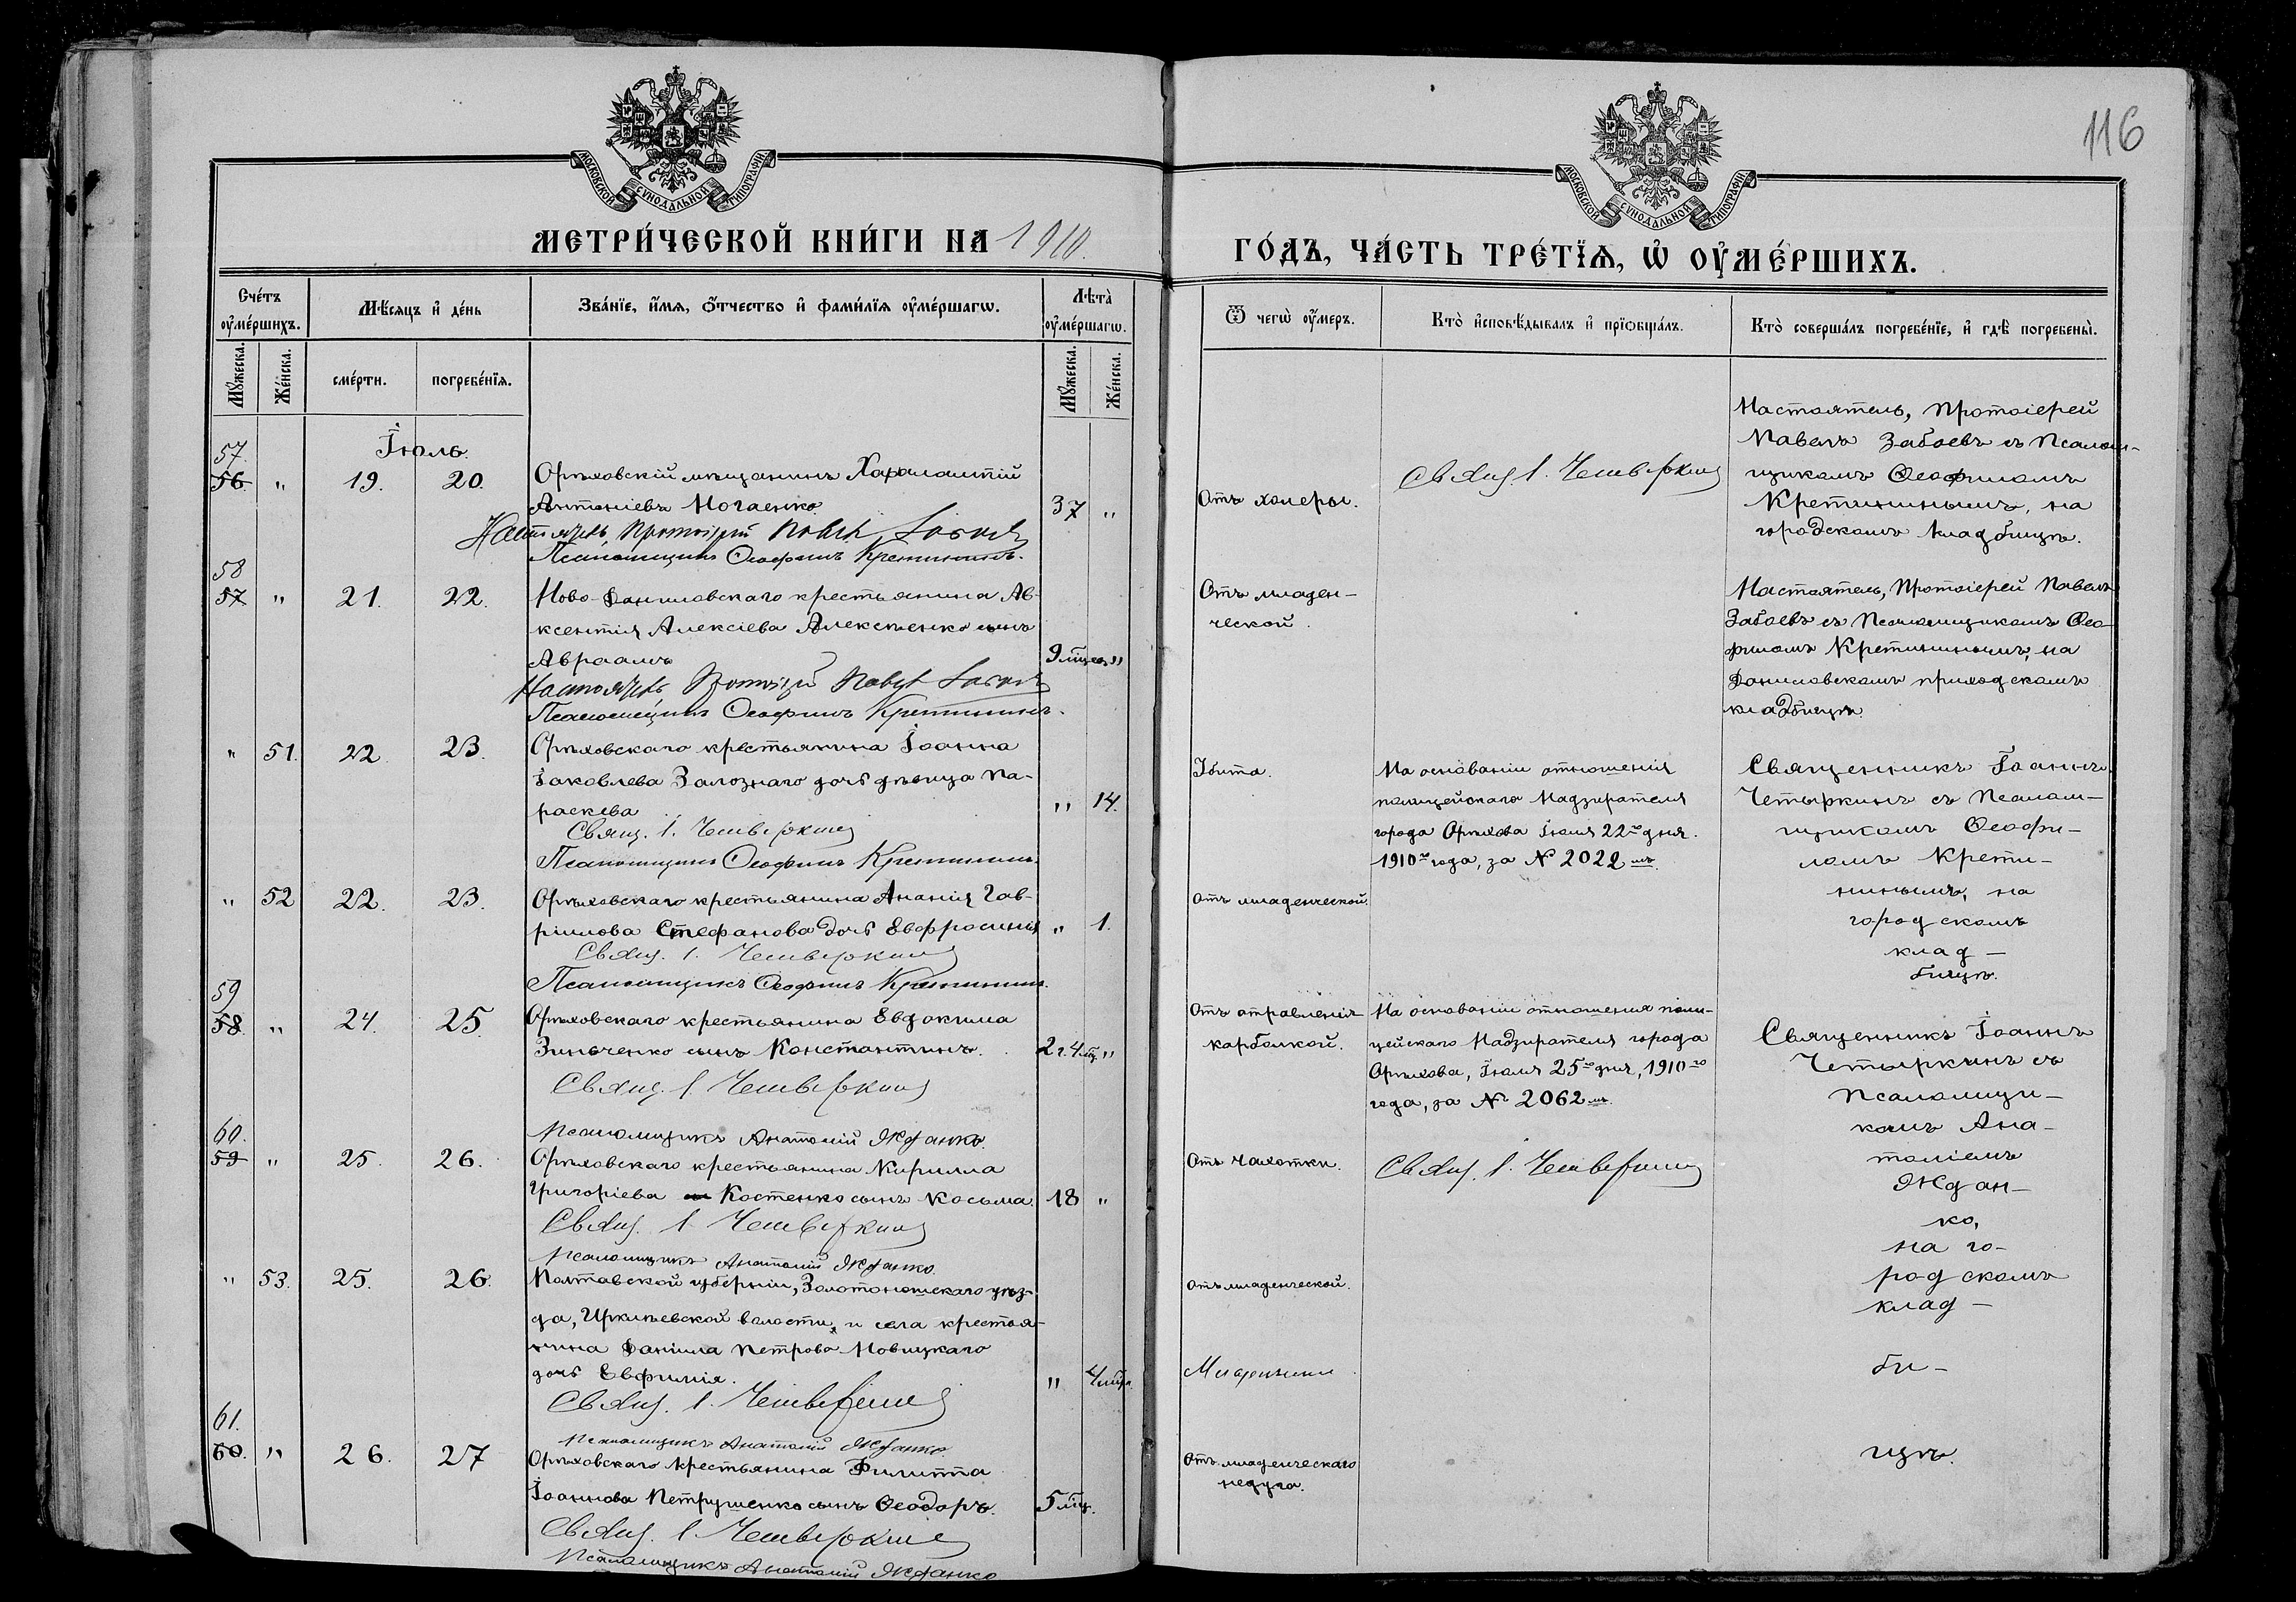 116
МОСКОВСКОЙ СѴНОДАЛЬНОЙ ТИПОГРАФІИ
МОСКОВСКОЙ СѴНОДАЛЬНОЙ ТИПОГРАФІИ
МЕТРИ́ЧЕСКОЙ КНИ́ГИ НА 1910.
ГО́ДЪ, ЧА́СТЬ ТРЕ́ТЇѦ, Ѡ҆ ОУ҆МЕ́РШИХЪ.
Сче́тъ оу҆ме́ршихъ.
Мѣ́сяцъ и҆ де́нь
Зва́нїе, и҆́мѧ, ѻ҆́тчество и҆ фами́лїѧ оу҆ме́ршагѡ.
Лѣта̀ оу҆ме́ршагѡ.
Ѿ чегѡ̀ оу҆́меръ.
Кто̀ и҆сповѣ́дывалъ и҆ прїѻбща́лъ.
Кто̀ соверша́лъ погребе́нїе, и҆ гдѣ̀ погребены̀.
Мꙋ́жеска.
Же́нска.
сме́рти.
погребе́нїѧ.
Мꙋ́жеска.
Же́нска.
Іюль.
57.
56. " 19. 20. Орѣховскій мѣщанинъ Харалампій
Антоніевъ Ногаенко. 37 "
Настоятель, Протоіерей Павелъ Забаевъ
Псаломщикъ Ѳеофилъ Кретининъ.
Отъ холеры.
Свящ. І. Четыркинъ
Настоятель, Протоіерей
Павелъ Забаевъ съ Псалом-
щикомъ Ѳеофиломъ
Кретининымъ, на
городскомъ кладбищѣ.
58
57 " 21. 22. Ново-Даниловскаго крестьянина Ав-
ксентія Алексіева Алексѣенко сынъ
Авраамъ 9 мѣц. "
Настоятель Протоіерей Павелъ Забаевъ
Псаломщикъ Ѳеофилъ Кретининъ.
Отъ младен-
ческой.
Настоятель, Протоіерей Павелъ
Забаевъ съ Псаломщикомъ Ѳео-
филомъ Кретининымъ, на
Даниловскомъ приходскомъ
кладбищѣ
" 51. 22. 23. Орѣховскаго крестьянина Іоанна
Іаковлева Залознаго дочь дѣвица Па-
раскева " 14.
Свящ. І. Четыркинъ
Псаломщикъ Ѳеофилъ Кретининъ.
Убита.
На основаніи отношенія
полицейскаго Надзирателя
города Орѣхова Іюля 22го дня.
1910го года, за № 2022мъ.
Священникъ Іоаннъ
Четыркинъ съ Псалом-
щикомъ Ѳеофи-
ломъ Крети-
нинымъ, на
городскомъ
клад-
бищѣ.
" 52 22. 23. Орѣховскаго крестьянина Ананія Гав-
ріилова Стефанова дочь Евфросинія " 1.
Свящ. І. Четыркинъ
Псаломщикъ Ѳеофилъ Кретининъ.
отъ младенческой.
59
58. " 24. 25. Орѣховскаго крестьянина Евдокима
Зинченко сынъ Константинъ. 2 г. 4 мѣц. "
Свящ. І. Четыркинъ
Псаломщикъ Анатолій Жданко.
Отъ отравленія
карболкой.
На основаніи отношенія поли-
цейскаго Надзирателя города
Орѣхова, Іюля 25го дня, 1910го
года, за № 2062мъ.
Священникъ Іоаннъ
Четыркинъ съ
Псаломщи-
комъ Ана-
толіемъ
Ждан-
ко,
на го-
родскомъ
клад-
би-
щѣ.
60.
59 " 25. 26. Орѣховскаго крестьянина Кирилла
Григоріева Костенко сынъ Косьма. 18 "
Свящ. І. Четыркинъ
Псаломщикъ Анатолій Жданко.
Отъ чахотки.
Свящ. І. Четыркинъ
" 53. 25. 26. Полтавской губерніи, Золотоношскаго уѣз-
да, Иркліевской волости, и села крестья-
нина Даніила Петрова Новицкаго
дочь Евфимія. " 4 мѣц.
Свящ. І. Четыркинъ
Псаломщикъ Анатолій Жданко
отъ младенческой.
61.
60. " 26. 27 Орѣховскаго крестьянина Филиппа
Іоаннова Петрушенко сынъ Ѳеодоръ. 5 мѣц.
Свящ. І. Четыркинъ
Псаломщикъ Анатолій Жданко
отъ младенческаго
недуга.